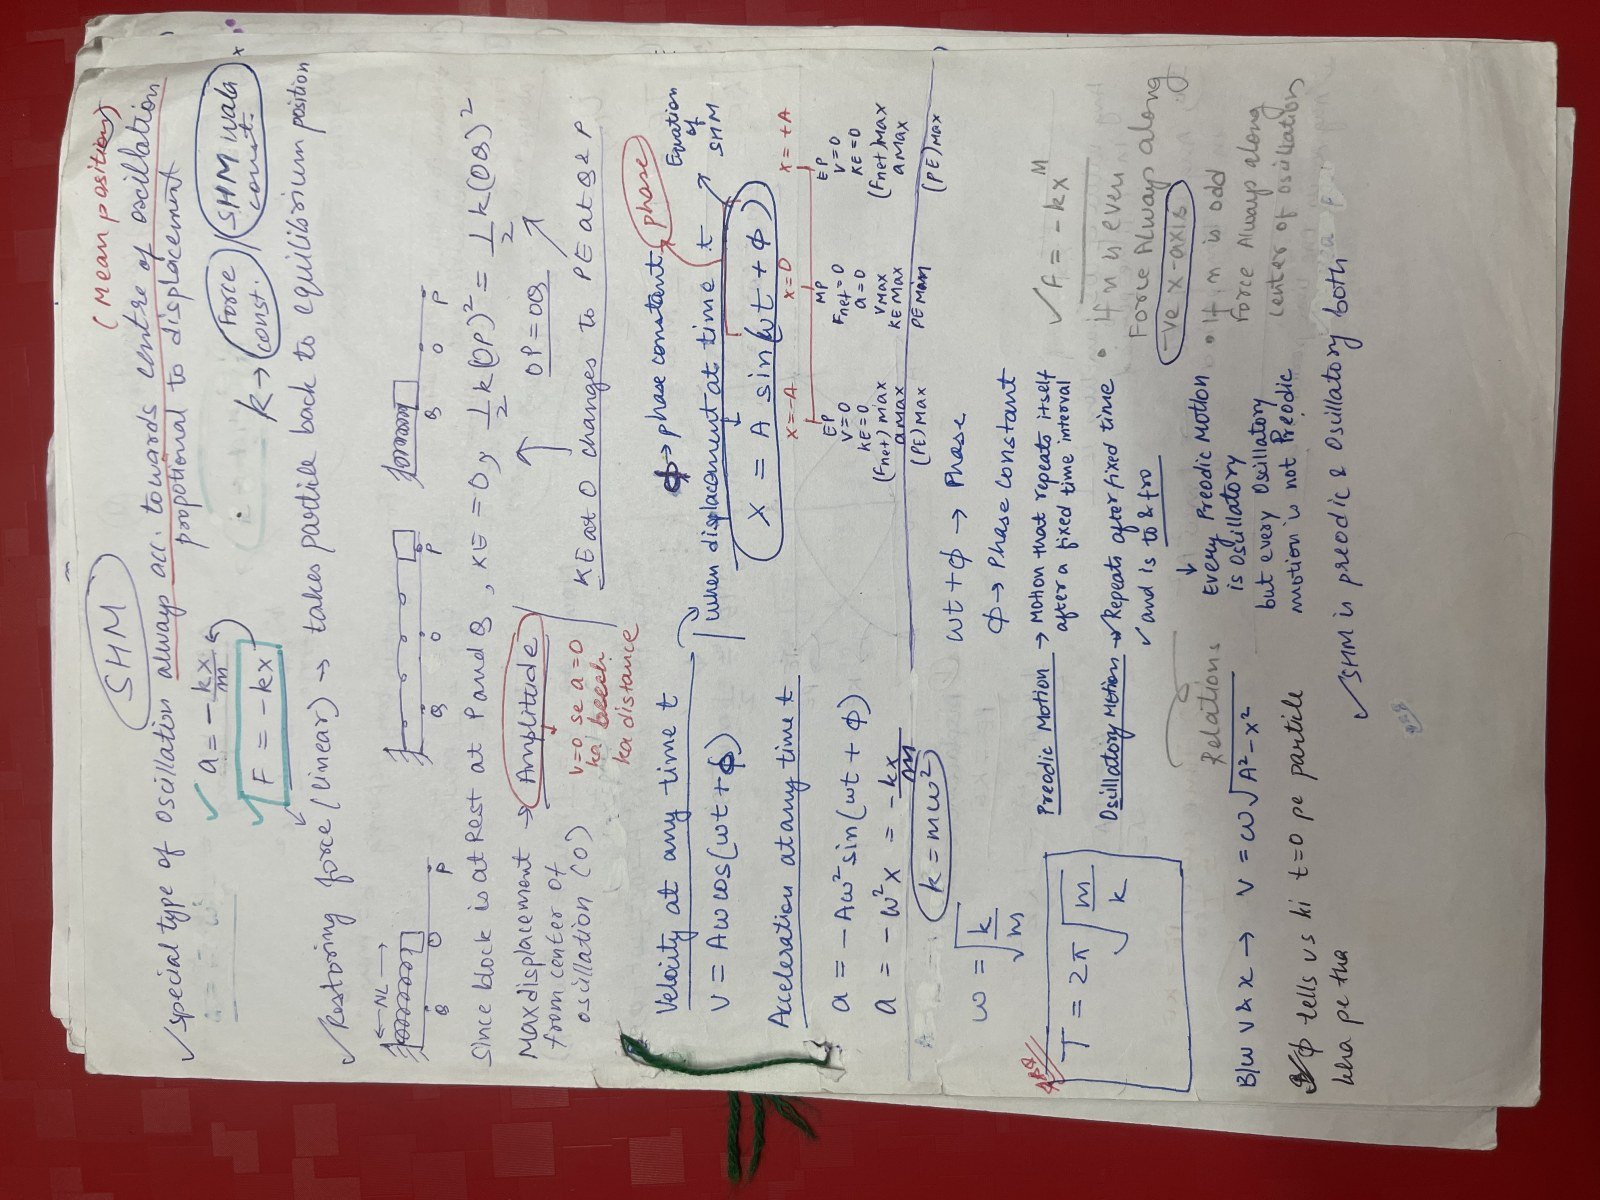 SHM
(Mean position)
✓ special type of oscillation always acc. towards centre of oscillation
propotional to displacement
✓ a = -kx/m
✓ F = -kx
k → Force const. / SHM wala const.
✓ Restoring force (linear) → takes particle back to equilibrium position
←NL→
Q O P
Q O P
Q O P
Since block is at Rest at P and Q, KE = 0, 1/2 k(OP)² = 1/2 k(OQ)²
OP = OQ
Max displacement → Amplitude
from center of
oscillation (O)
v=0 se a=0
ka beech
ka distance
KE at O changes to PE at Q & P
ϕ → phase constant
phase
Velocity at any time t
v = Aω cos(ωt + ϕ)
when displacement at time t
x = A sin(ωt + ϕ)
Equation
of
SHM
Acceleration at any time t
a = -Aω² sin(ωt + ϕ)
a = -ω²x = -kx/m
k = mω²
x = -A x = 0 x = +A
EP
V=0
KE=0
(Fnet) max
a max
(PE) max
MP
Fnet=0
a=0
V max
KE max
PE min
EP
V=0
KE=0
(Fnet) max
a max
(PE) max
ω = √k/m
T = 2π √m/k
ωt + ϕ → Phase
ϕ → Phase constant
Preodic Motion → Motion that repeats itself
after a fixed time interval
Oscillatory Motion → Repeats after fixed time
✓ and is to & fro
↓
Every Preodic Motion
is Oscillatory
but every Oscillatory
motion is not Preodic
✓ A = -kx^M
• if n is even
Force Always along
-ve x-axis
• If n is odd
Force Always along
center of oscillations
Relations
B/w v & x → v = ω√A² - x²
ϕ tells us ki t=0 pe particle
kha pe tha
✓ SHM is preodic & Oscillatory both